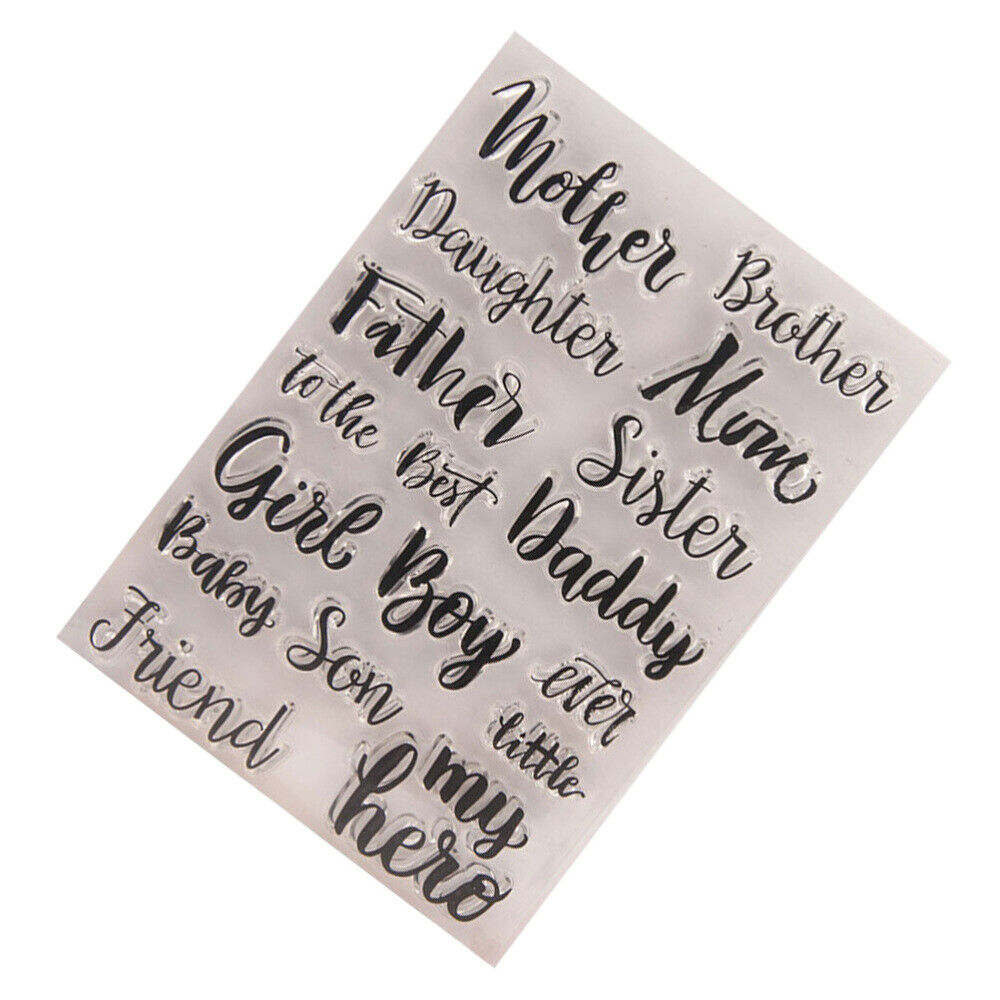 Mother
Daughter
Brother
Father
Mom
to the
Best
Sister
Girl
Boy
Daddy
Baby
Son
ever
Friend
little
my
hero